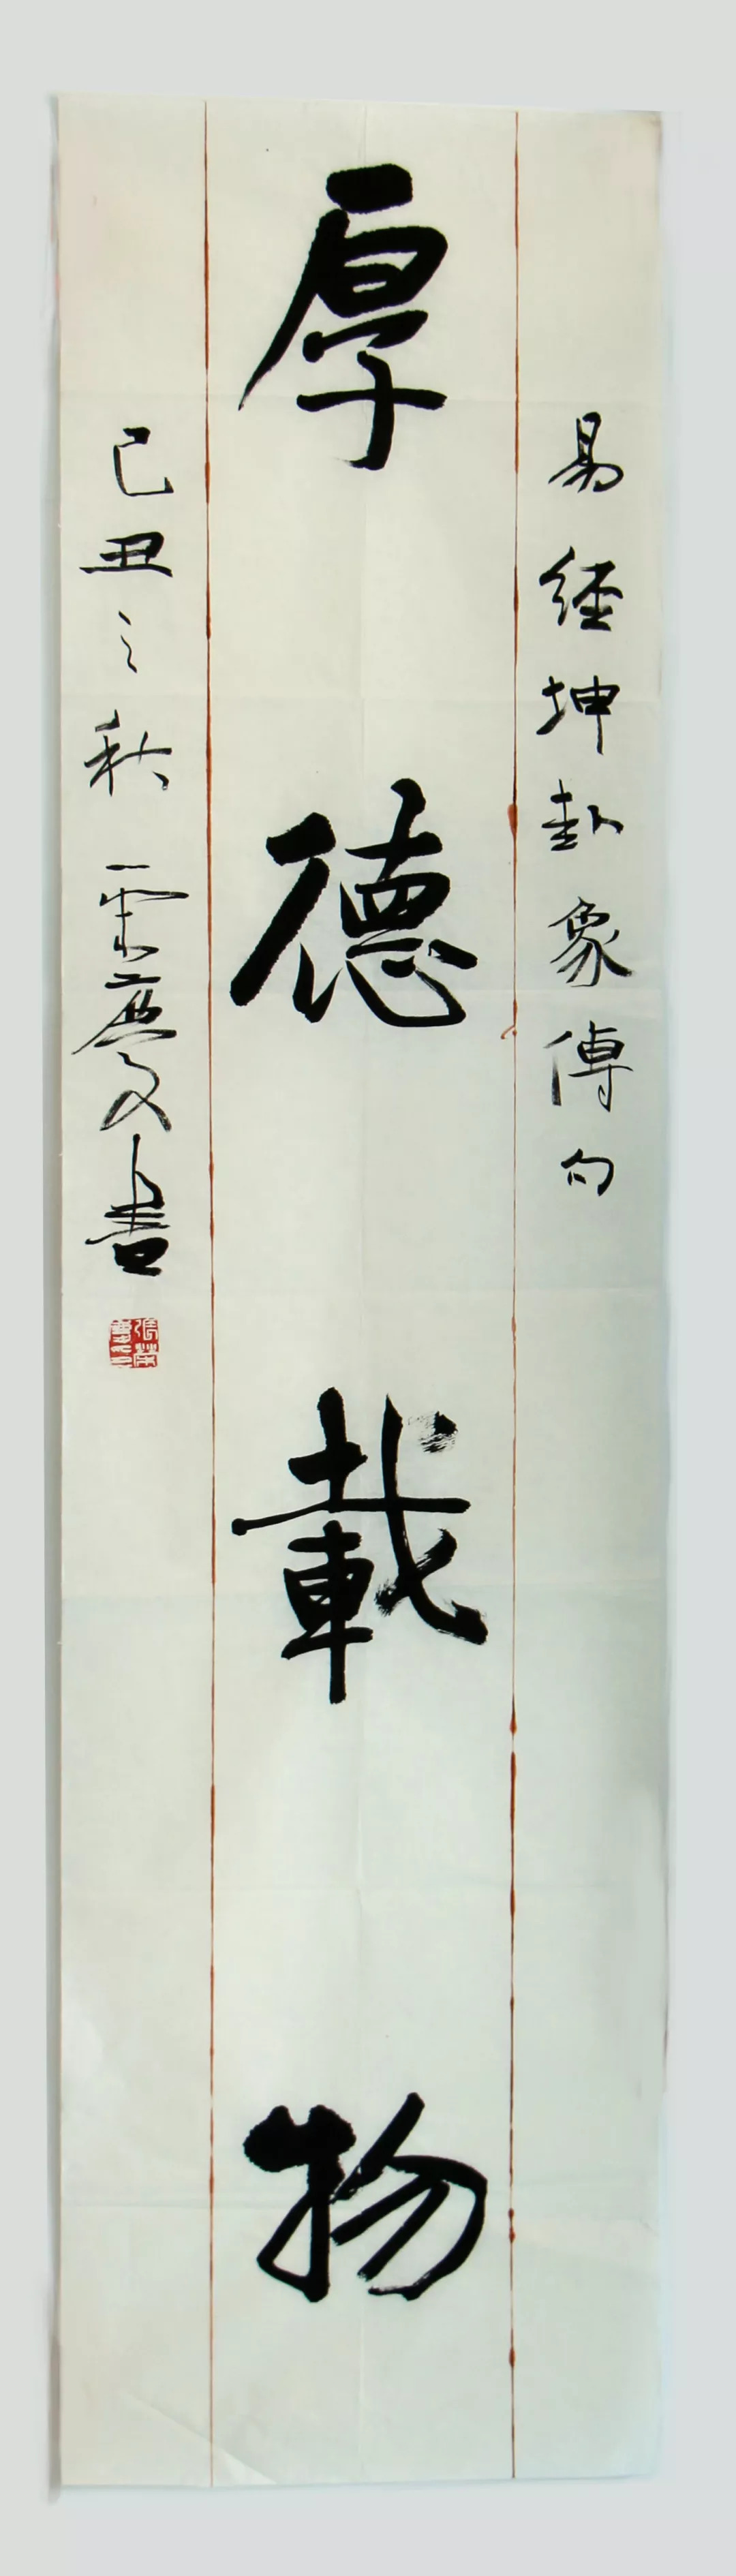 易經坤卦象傳句
厚德載物
己丑之秋 榮慶書